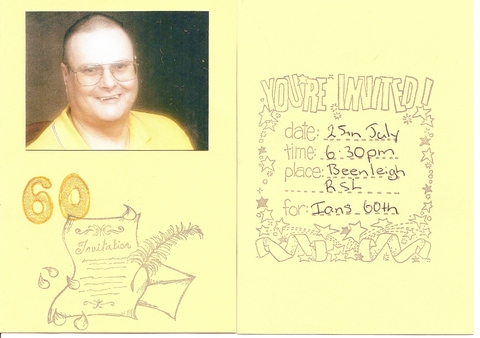 60
Invitation
YOU'RE INVITED!
date: 25th July
time: 6:30pm
place: Beenleigh
RSL
for: Ians 60th